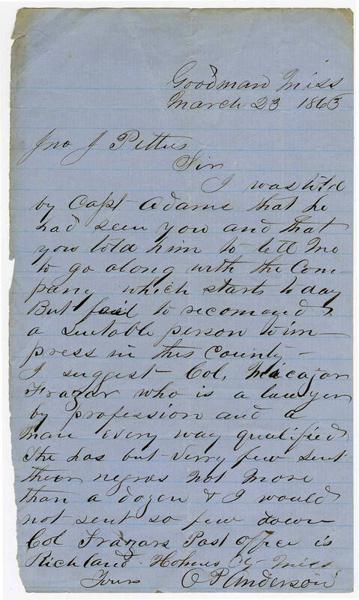 Goodman Miss
March 23 1863
Jno J Pettus
Sir
I was told
by Capt Adams that he
had seen you and that
you told him to tell me
to go along with the Com
pany which starts to day
But fail to recomend
a suitable person to im
press in this County —
I suggest Col.
Frazar who is a lawyer
by profession and a
man every way qualified
He has but verry few sent
negros not more
than a dozen & I would
not sent so few down
Col Frazars Post office is
Richland Holmes Cy Miss
Yours O P Anderson